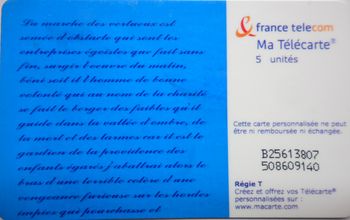 Du marche des vertueux est
semée d'obstacle qui sont les
entreprises égoïstes que fait sans
fin, surgir l'oeuvre du malin,
béni soit-il l'homme de bonne
volonté qui au nom de la charité
se fait le berger des faibles qu'il
guide dans la vallée d'ombre, de
la mort et des larmes car il est le
gardien de la providence des
enfants égarés j'abattrai alors le
bras d'une terrible colère d'une
vengeance furieuse sur les hordes
impies qui pourchasse et
france telecom
Ma Télécarte®
5 unités
Cette carte personnalisée ne peut
être ni remboursée ni échangée.
B25613807
508609140
Régie T
Créez et offrez vos Télécarte®
personnalisées sur :
www.macarte.com